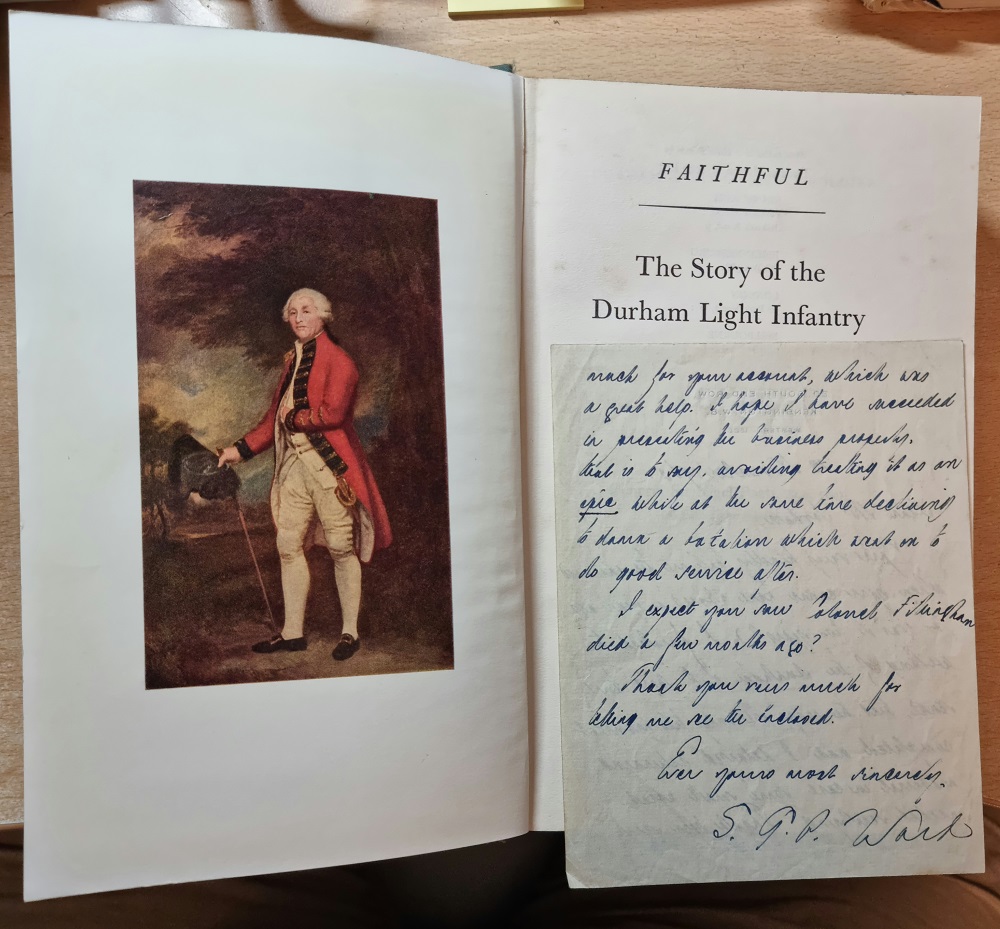 FAITHFUL
The Story of the
Durham Light Infantry
much for your account, which was
a great help. I hope I have succeeded
in presenting the business properly,
that is to say, avoiding treating it as an
epic while at the same time declining
to damn a battalion which went on to
do good service after.
I expect you saw Colonel
died a few months ago?
Thank you very much for
letting me see the enclosed.
Ever yours most sincerely,
S. G. P. Ward